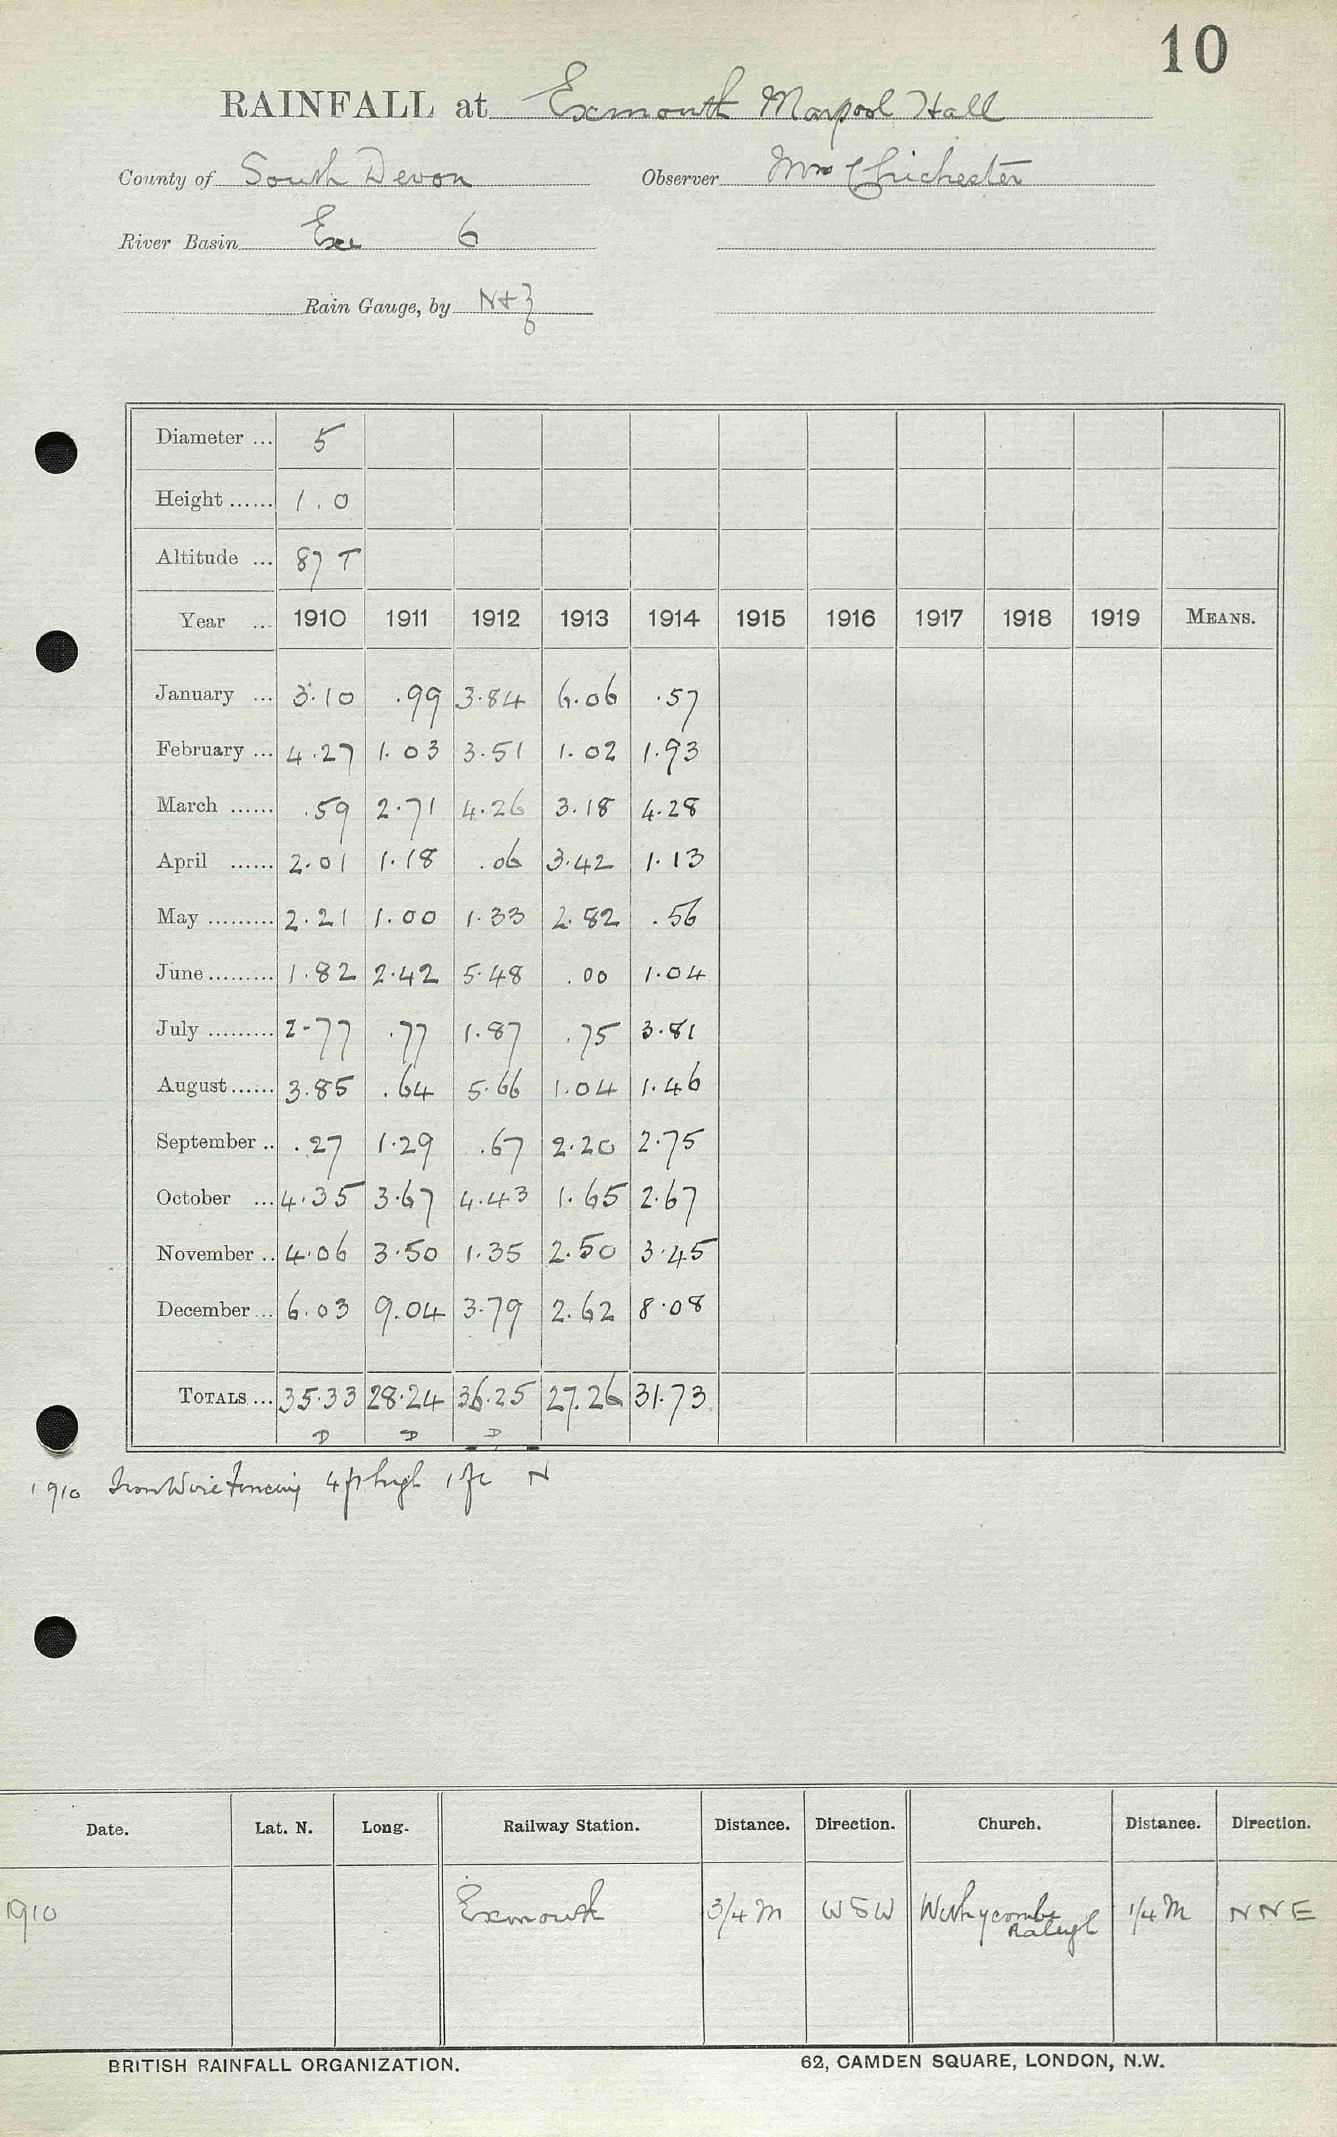 10
RAINFALL at Exmouth Marpool Hall
County of South Devon Observer Mrs Chichester
River Basin Exe 6
Rain Gauge, by N+Z
Diameter ... 5
Height ...... 1.0
Altitude ... 87 T
Year ... 1910 1911 1912 1913 1914 1915 1916 1917 1918 1919 MEANS.
January ... 3.10 .99 3.84 6.06 .57
February ... 4.27 1.03 3.51 1.02 1.93
March ...... .59 2.71 4.26 3.18 4.28
April ...... 2.01 1.18 .06 3.42 1.13
May ......... 2.21 1.00 1.33 2.82 .56
June ......... 1.82 2.42 5.48 .00 1.04
July ......... 2.77 .77 1.87 .75 3.81
August ...... 3.85 .64 5.66 1.04 1.46
September .. .27 1.29 .67 2.20 2.75
October ... 4.35 3.67 4.43 1.65 2.67
November .. 4.06 3.50 1.35 2.50 3.45
December ... 6.03 9.04 3.79 2.62 8.08
TOTALS ... 35.33 28.24 36.25 27.26 31.73
D D D
1910 Iron Wire fencing 4 ft high 1 ft N
Date. Lat. N. Long. Railway Station. Distance. Direction. Church. Distance. Direction.
1910 Exmouth 3/4 M WSW Withycombe Raleigh 1/4 M NNE
BRITISH RAINFALL ORGANIZATION. 62, CAMDEN SQUARE, LONDON, N.W.